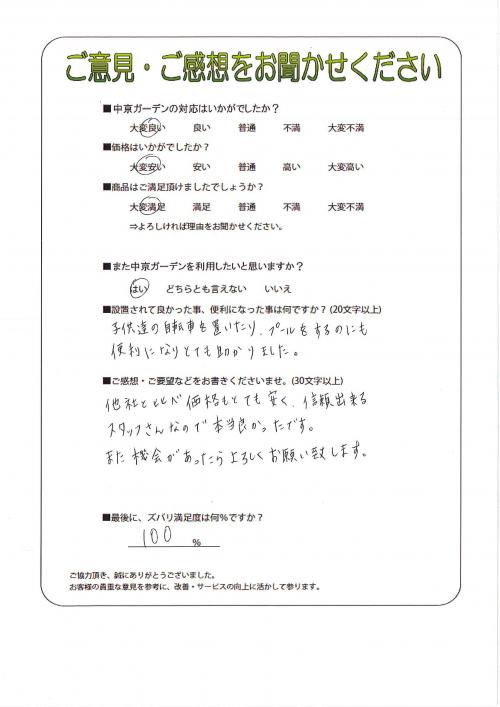 ご意見・ご感想をお聞かせください
■中京ガーデンの対応はいかがでしたか?
大変良い 良い 普通 不満 大変不満
■価格はいかがでしたか?
大変安い 安い 普通 高い 大変高い
■商品はご満足頂けましたでしょうか?
大変満足 満足 普通 不満 大変不満
⇒よろしければ理由をお聞かせください。
■また中京ガーデンを利用したいと思いますか?
はい どちらとも言えない いいえ
■設置されて良かった事、便利になった事は何ですか? (20文字以上)
子供達の自転車を置いたり、プールをするのにも
便利になりとても助かりました。
■ご感想・ご要望などをお書きくださいませ。(30文字以上)
他社とくらべ価格もとても安く、信頼出来る
スタッフさんなので本当良かったです。
また機会があったらよろしくお願い致します。
■最後に、ズバリ満足度は何%ですか?
100 %
ご協力頂き、誠にありがとうございました。
お客様の貴重な意見を参考に、改善・サービスの向上に活かして参ります。